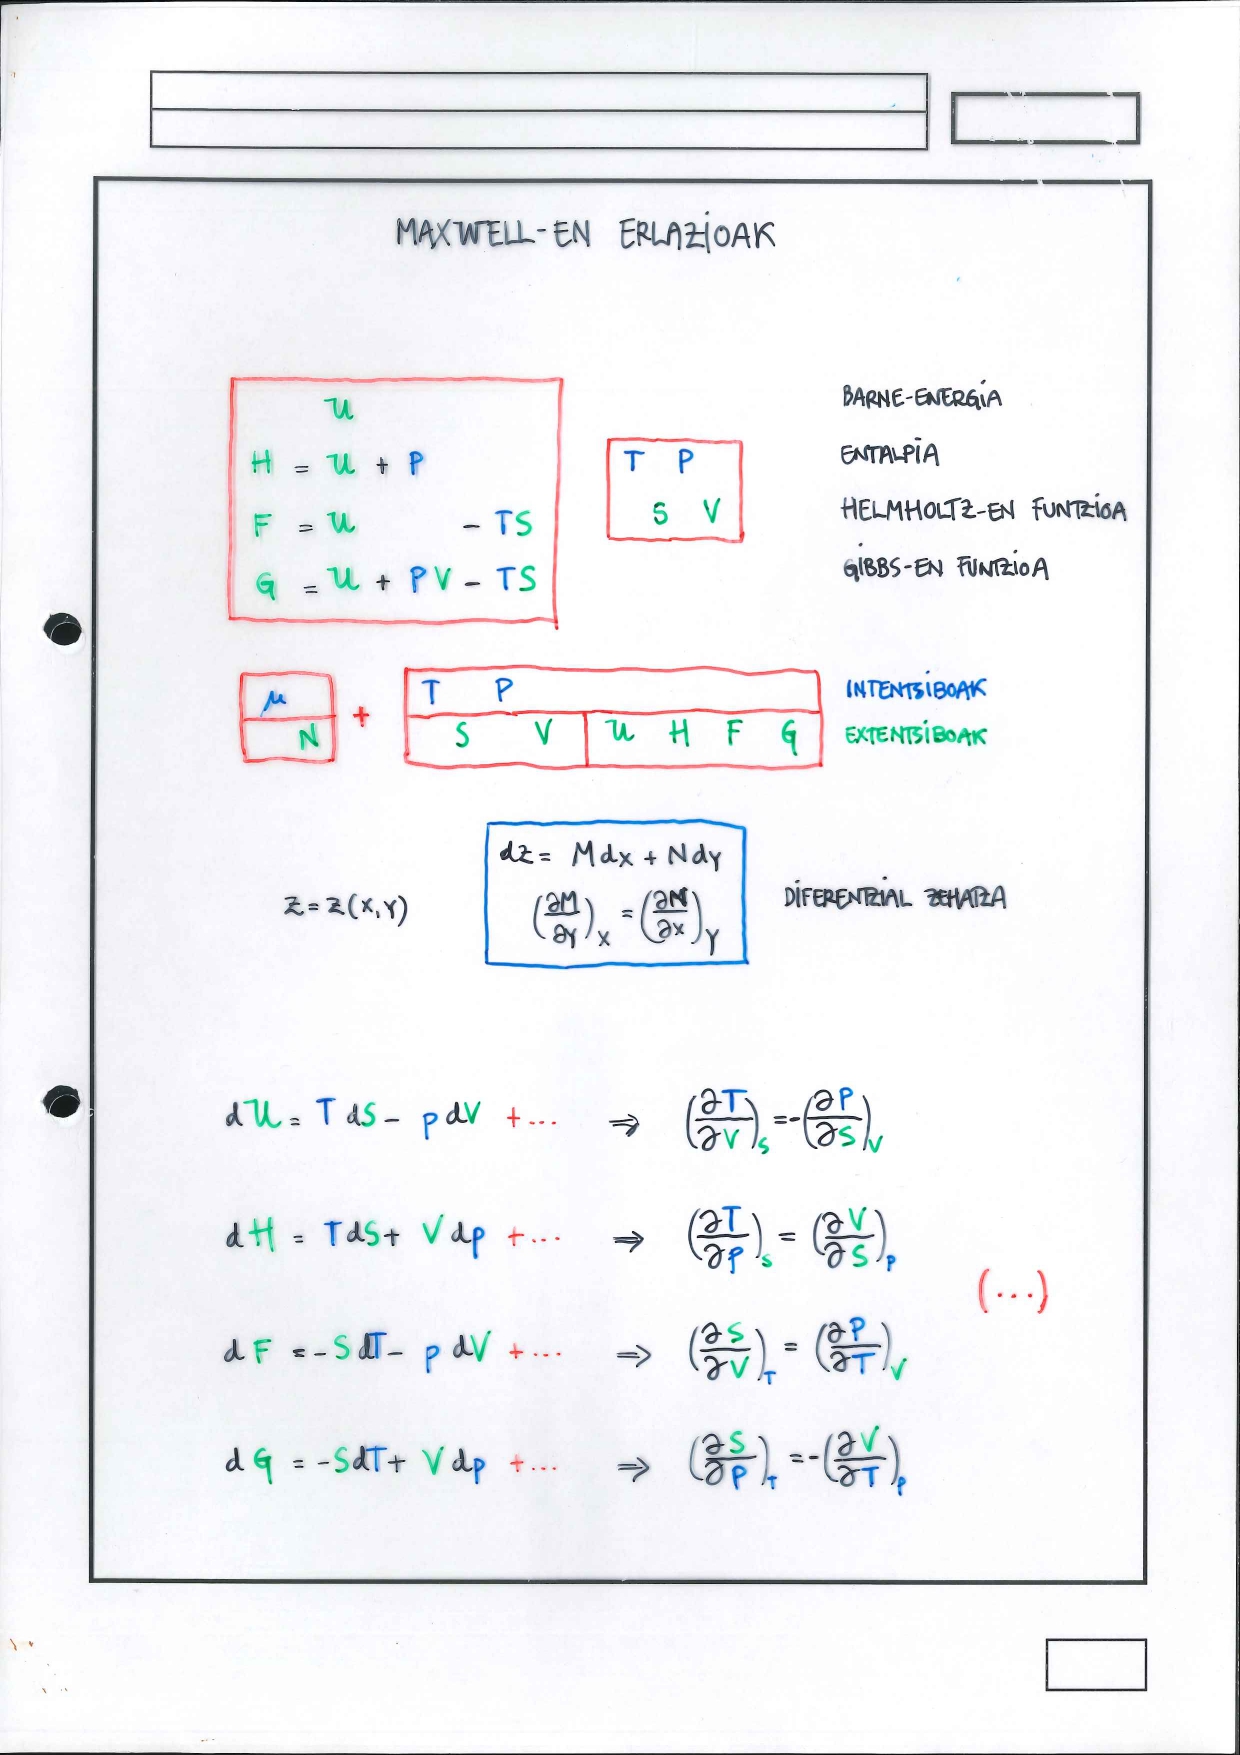 MAXWELL-EN ERLAZIOAK
U
H = U + P
F = U - TS
G = U + PV - TS
T P
S V
BARNE-ENERGIA
ENTALPIA
HELMHOLTZ-EN FUNTZIOA
GIBBS-EN FUNTZIOA
μ
N
+
T P
S V U H F G
INTENTSIBOAK
EXTENTSIBOAK
z = z(x,y)
dz = Mdx + Ndy
(∂M/∂y)x = (∂N/∂x)y
DIFERENTZIAL ZEHATZA
dU = TdS - pdV + ... ⇒ (∂T/∂V)S = -(∂P/∂S)V
dH = TdS + Vdp + ... ⇒ (∂T/∂P)S = (∂V/∂S)P
(...)
dF = -SdT - pdV + ... ⇒ (∂S/∂V)T = (∂P/∂T)V
dG = -SdT + Vdp + ... ⇒ (∂S/∂P)T = -(∂V/∂T)P